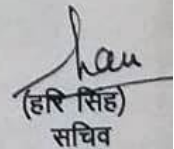 (हरि सिंह)
सचिव